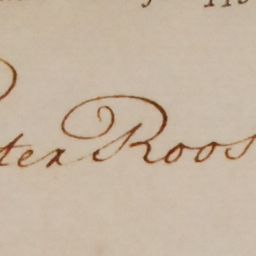 ter Roos